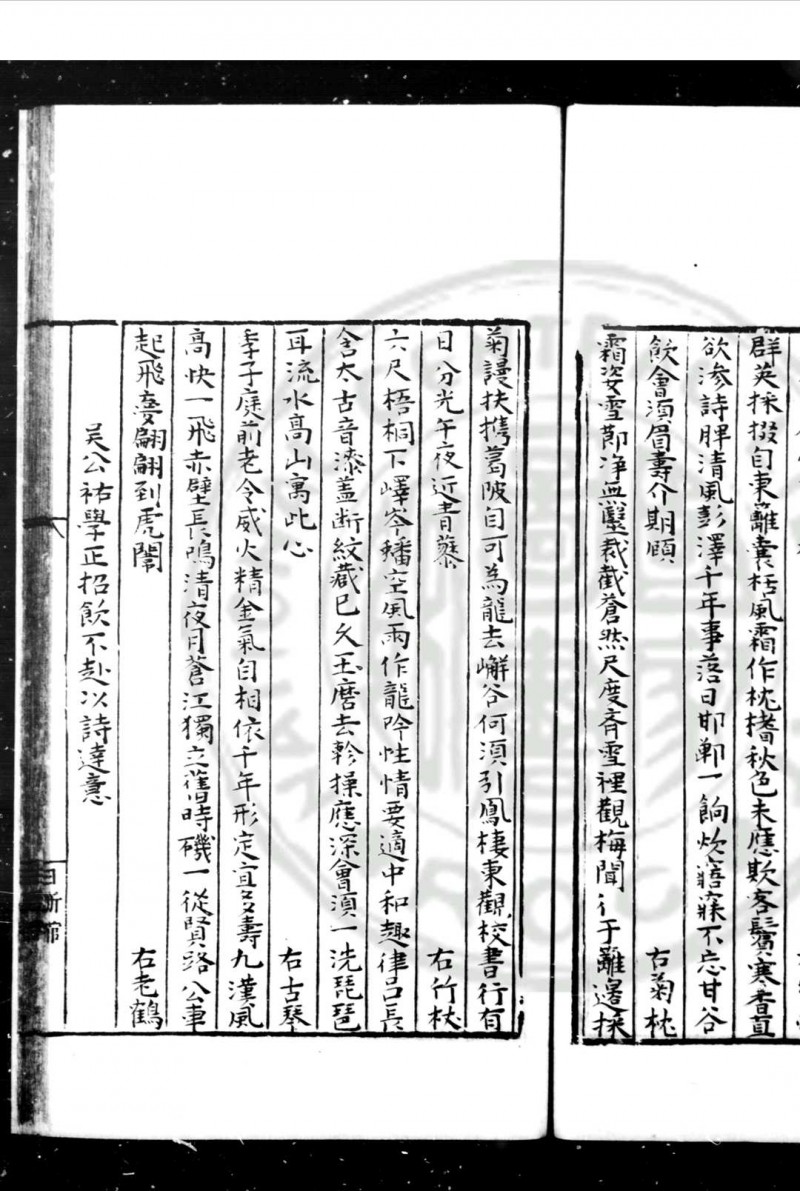 群英採掇自東籬囊栝風霜作枕㩦秋色未應欺客鬢寒香直
欲滲詩脾清風彭澤千年事落日邯鄲一餉炊藉寐不忘甘谷
飲會須眉壽介期頤　右菊枕
霜姿雪節淨無瑕裁截蒼然尺度齊雪裡觀梅閒行于籬邊採
菊謾扶携葛陂自可為龍去嶰谷何須引鳳棲東觀校書行有
日分光午夜近青藜　右竹杖
六尺梧桐下嶧岑蟠空風雨作龍吟性情要適中和趣律呂長
含太古音漆蓋断紋藏已久玉磨去軫操應深會須一洗琵琶
耳流水高山寓此心　右古琴
季子庭前老令威火精金氣自相依千年形定宜多壽九漢風
高快一飛赤壁長鳴清夜月蒼江獨立舊時磯一從賢路公車
起飛夢翩翩到虎闈　右老鶴
吴公祐學正招飲不赴以詩達意